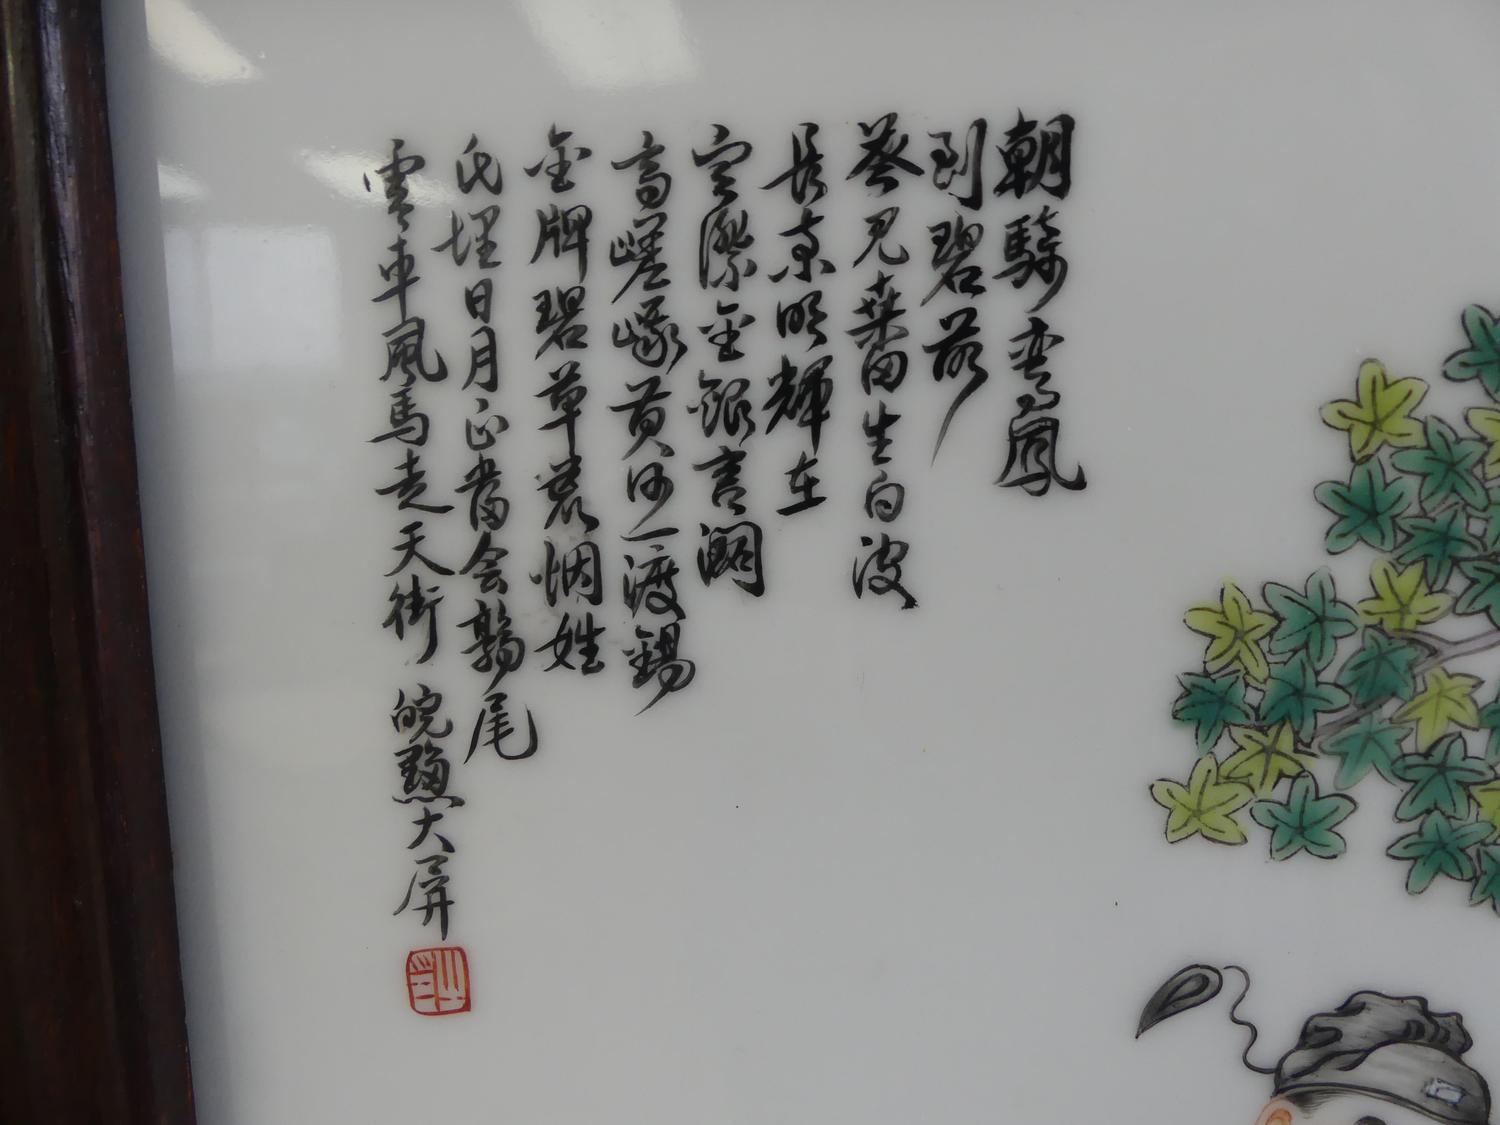 朝騎鸞鳳
到碧落
暮見桑田生白波
長景明輝在
空際金銀宮闕
高嵯峨黄河一渡錫
金牌碧草荒烟姓
氏埋日月正當会鶉尾
雲車風馬走天街 皖黟大屏